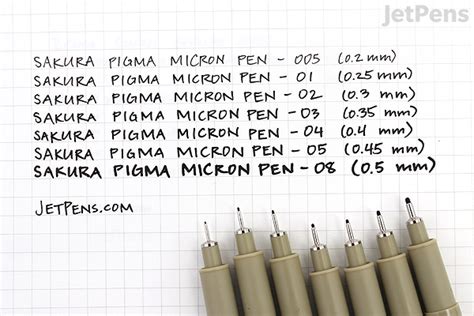 JetPens
SAKURA PIGMA MICRON PEN - 005 (0.2 mm)
SAKURA PIGMA MICRON PEN - 01 (0.25 mm)
SAKURA PIGMA MICRON PEN - 02 (0.3 mm)
SAKURA PIGMA MICRON PEN - 03 (0.35 mm)
SAKURA PIGMA MICRON PEN - 04 (0.4 mm)
SAKURA PIGMA MICRON PEN - 05 (0.45 mm)
SAKURA PIGMA MICRON PEN - 08 (0.5 mm)
JETPENS.COM